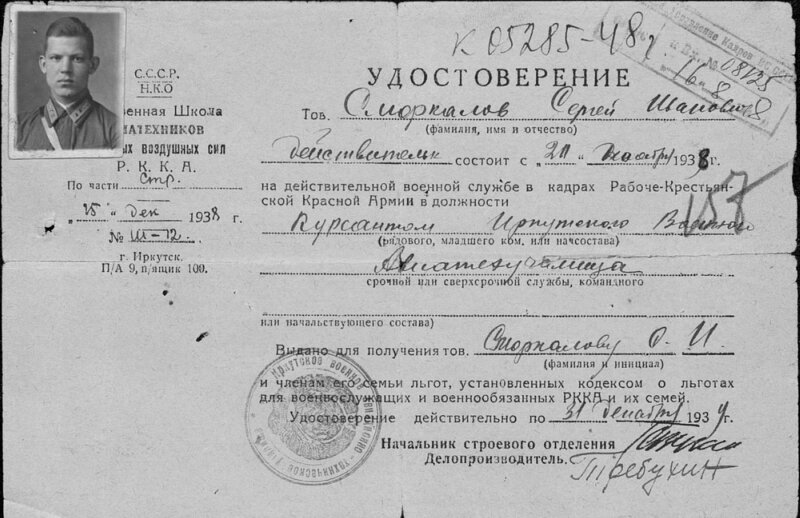 К 05285-48г
08128
С.С.С.Р.
Н.К.О
венная Школа
МАТЕХНИКОВ
ых воздушных сил
Р. К. К. А.
По части Стр.
"25" дек 1938 г.
№ III-12.
г. Иркутск.
П/А 9, п/ящик 109.
УДОСТОВЕРЕНИЕ
Тов. Сморкалов Сергей
(фамилия, имя и отчество)
действительн состоит с "20" ноября 1938 г.
на действительной военной службе в кадрах Рабоче-Крестьян-
ской Красной Армии в должности
153
Курсантом Иркутского Военного
(рядового, младшего ком. или начсостава)
Авиатехучилища
срочной или сверхсрочной службы, командного
или начальствующего состава)
Выдано для получения тов. Сморкалову С. И.
(фамилия и инициал)
и членам его семьи льгот, установленных кодексом о льготах
для военнослужащих и военнообязанных РККА и их семей.
Удостоверение действительно по 31 декабря 1939 г.
Начальник строевого отделения
Делопроизводитель.
Требухин